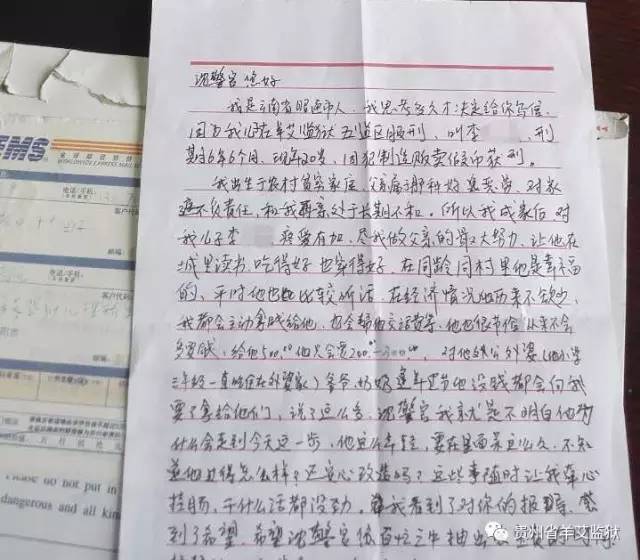 沈警官您好
我是云南省昭通市人,我思考多久才决定给你写信,
因为我儿在羊艾监狱五监区服刑,叫李 刑
期6年6个月,现年20岁,因犯制造贩卖假币获刑。
我出生于农村贫穷家庭,父亲属那种好 对家
庭不负责任,和我母亲处于长期不和。所以我成家后对
我儿子李 疼爱有加,尽我做父亲的最大努力,让他在
城里读书,吃得好也穿得好,在同龄同村里他是幸福
的,平时他也比较听话,在经济情况他历来不缺少,
我都会主动拿钱给他,也会帮他交话费等,他也很节俭从来不会
多要钱,给他500.00他只会要200.00-300.00,对他外公外婆(他小学
三年级一直吃住在外婆家)爷爷、奶奶逢年过节他没钱都会向我
要了拿给他们,说了这么多,沈警官我就是不明白他为
什么会走到今天这一步,他这么年轻,要在里面呆这么久,不知
道他过得怎么样?还安心改造吗?这些事随时让我牵心
挂肠,干什么活都没劲,我看到了对你的报 感
到了希望,希望沈警官您百忙之中抽出
EMS
WORLDWIDE EXPRESS MAIL
电话/手机:
客户代码
邮编:
电话/手机:
客户代码
Please do not put in
dangerous and all kin
贵州省羊艾监狱